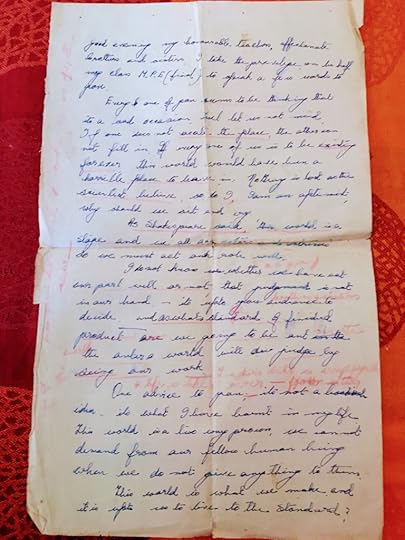 good evening my honourable teachers, affectionate
brothers and sisters I take the previlege on be half
my class M.P.E (final) to speak a few words to
you
Every one of you seems to be thinking that
is a sad occasion, but let us not mind.
If one does not vacate the place, the other can
not fill in If every one of us is to be existing
forever this world would have been a
horrible place to leave in. Nothing is lost as the
scientist believe, so do I, I am an optimist,
why should we not and cry
As Shakespeare said, 'this world is a
stage and we all are actors and actresses
So we must act our role well
I do not know whether we have act
our part well or not that judgement is not
in our hand - its upto you audience to
decide and as what standard of finished
product are we going to be out
the outer world will judge by
seeing our work
One advice to you, its not a bookish
idea - its what I have learnt in my life
This world is a live my person, we cannot
demand from our fellow human being
when we do not give anything to them.
This world is what we make and
it is upto us to live to the standard?